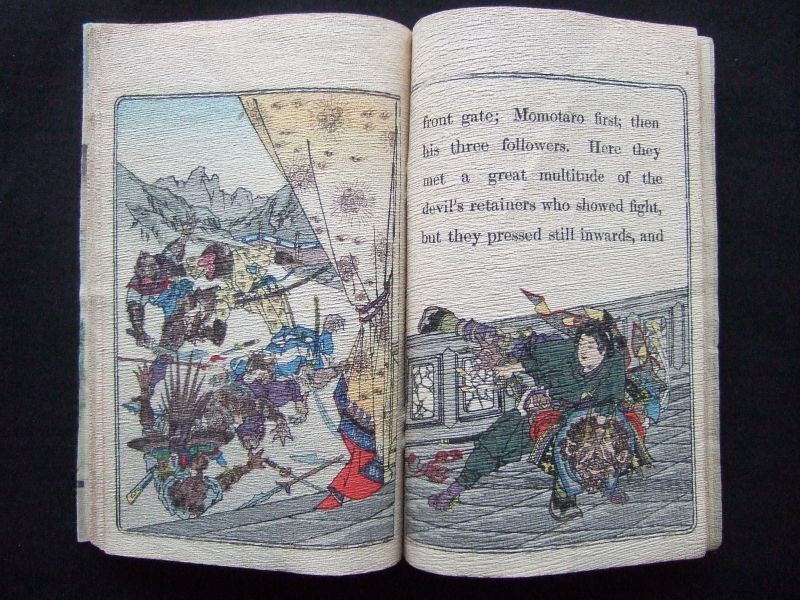 front gate; Momotaro first; then
his three followers. Here they
met a great multitude of the
devil's retainers who showed fight,
but they pressed still inwards, and